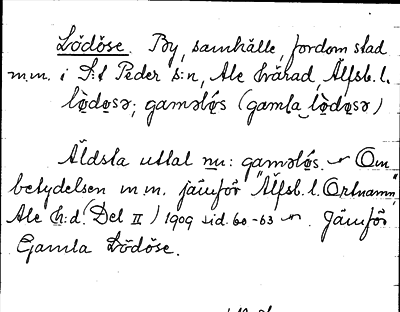 Lödöse. By, samhälle, fordom stad
m.m. i S:t Peder s:n, Ale härad, Älfsb. l.
lø̀dɷsə; gaməlǿs (gamla lø̀dɷsə)
Äldsta uttal nu: gaməlǿs. — Om
betydelsen m.m. jämför "Älfsb. l. Ortnamn",
Ale h:d. (Del II) 1909 sid. 60-63 —. Jämför
Gamla Lödöse.